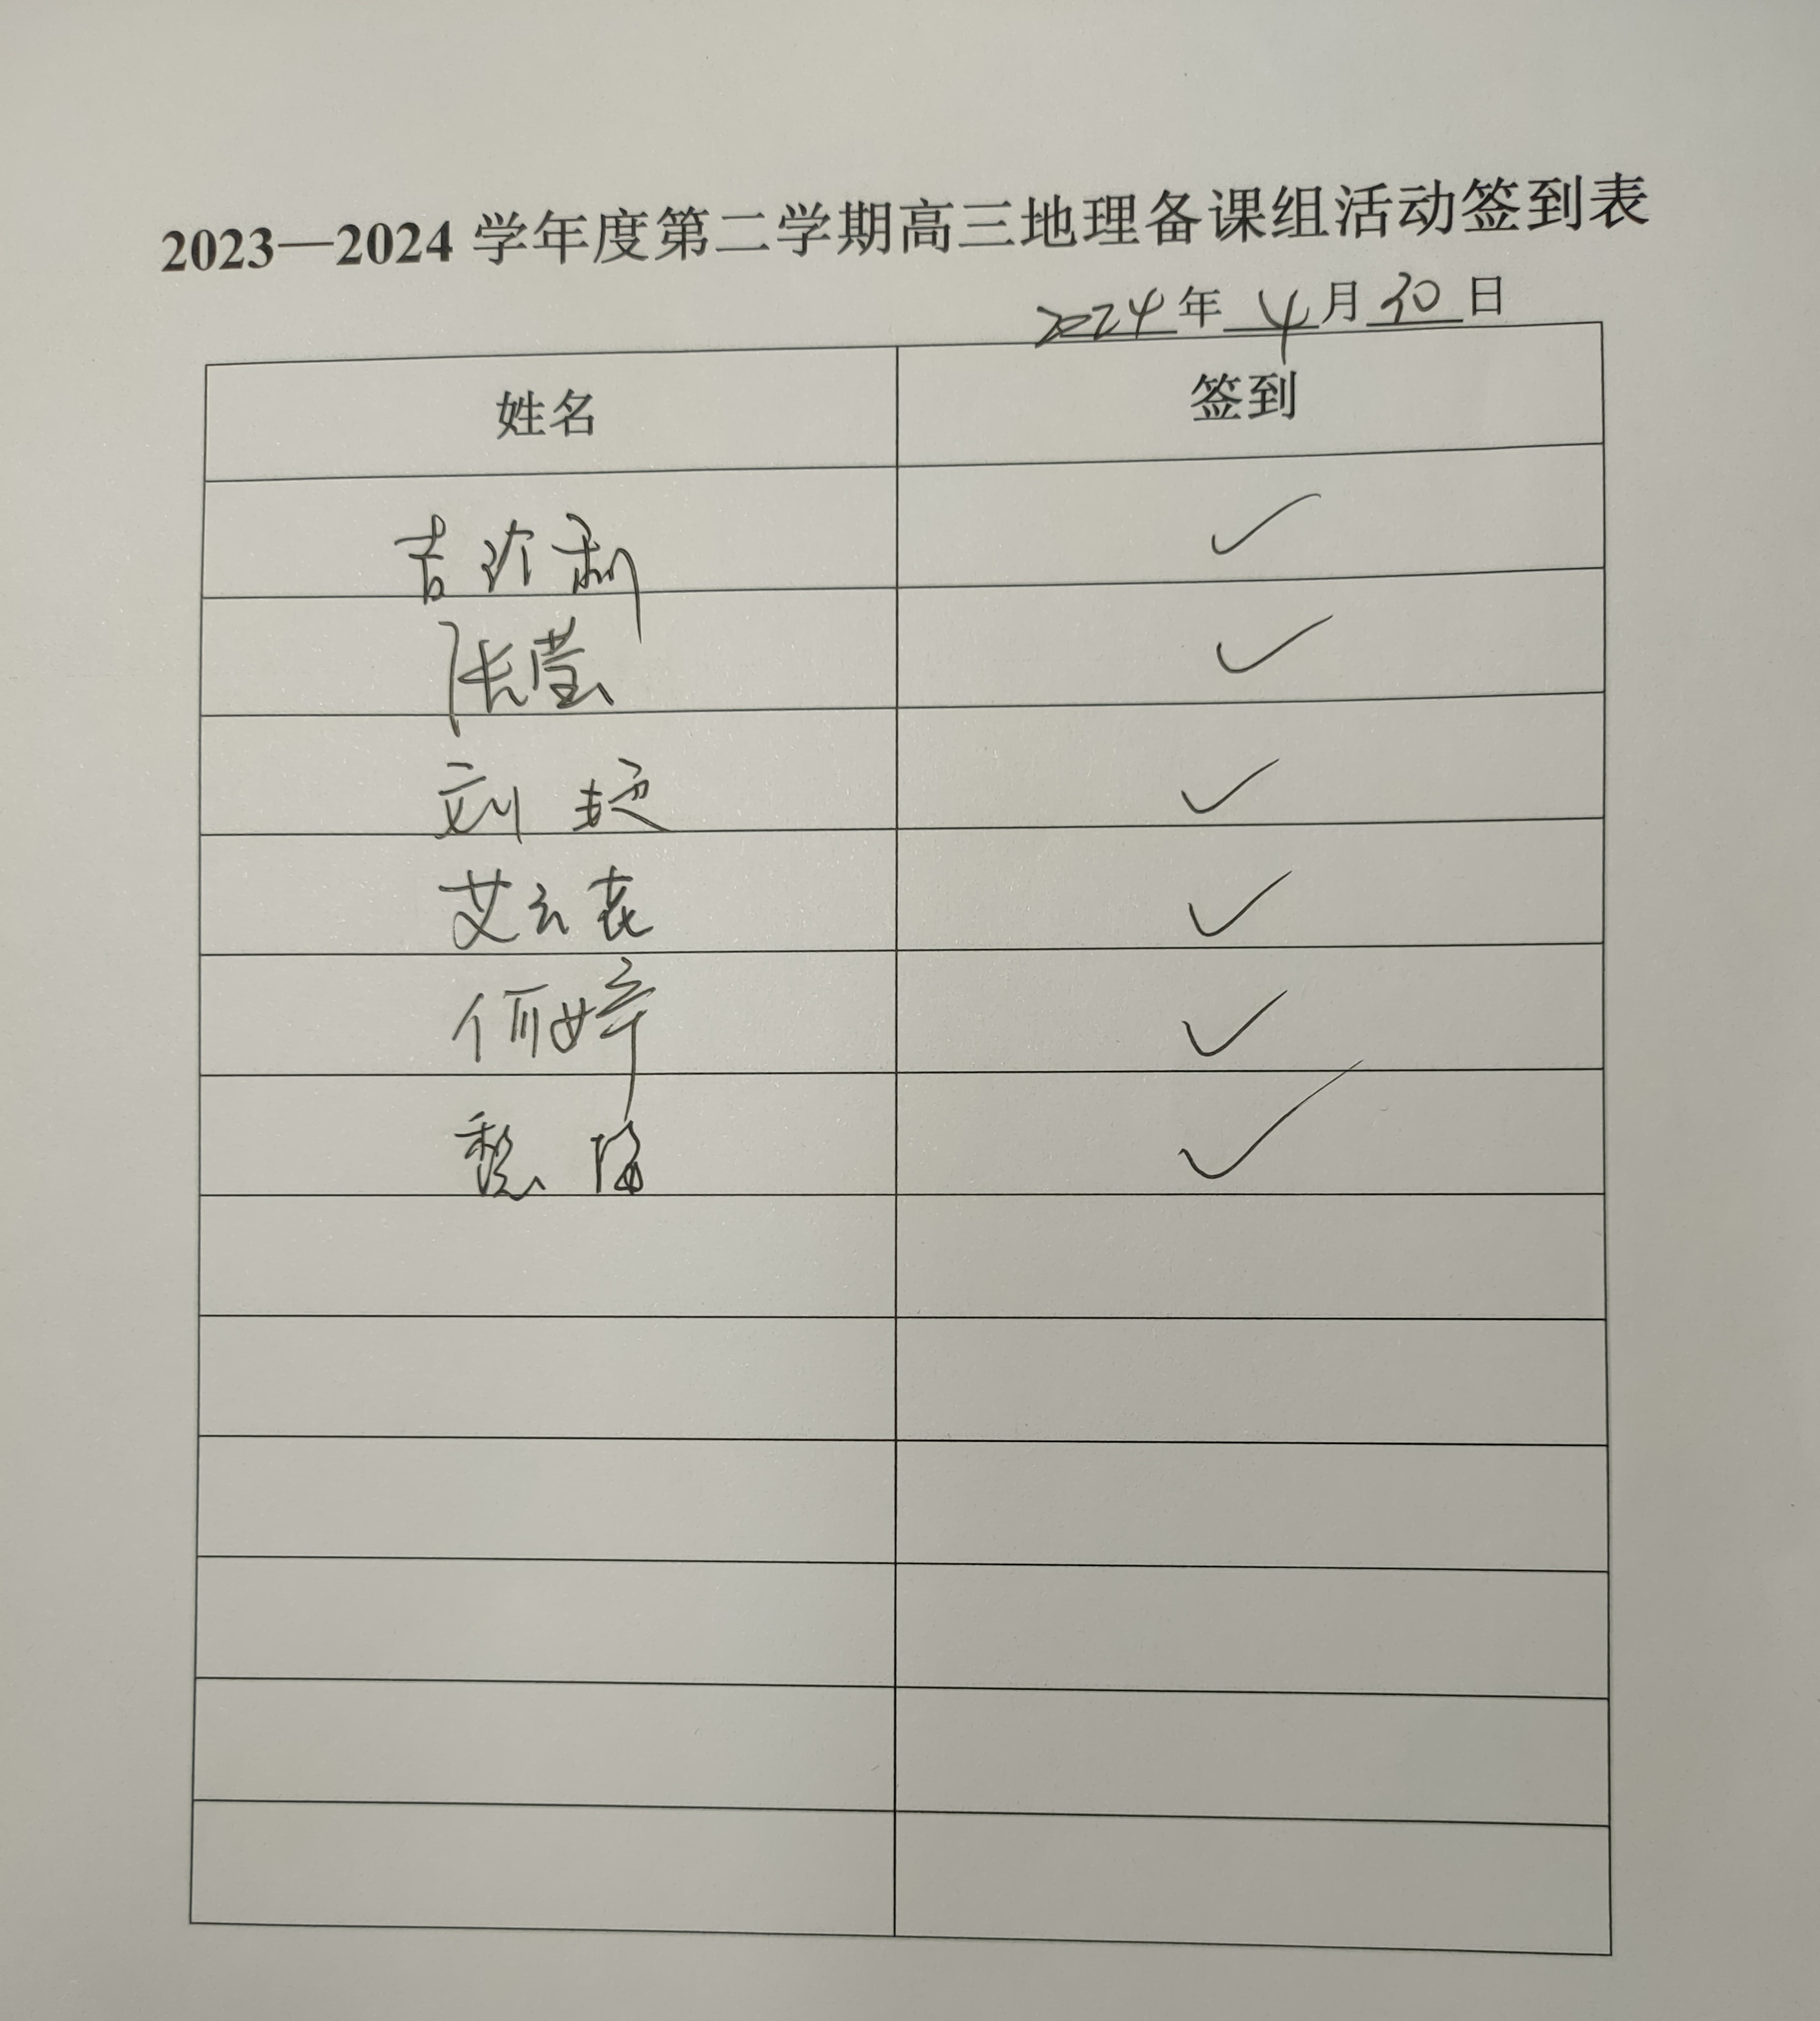 2023—2024 学年度第二学期高三地理备课组活动签到表
2024 年 4 月 30 日
姓名 签到
吉 利 ✓
张莹 ✓
刘 ✓
艾云 ✓
何婷 ✓
魏 ✓